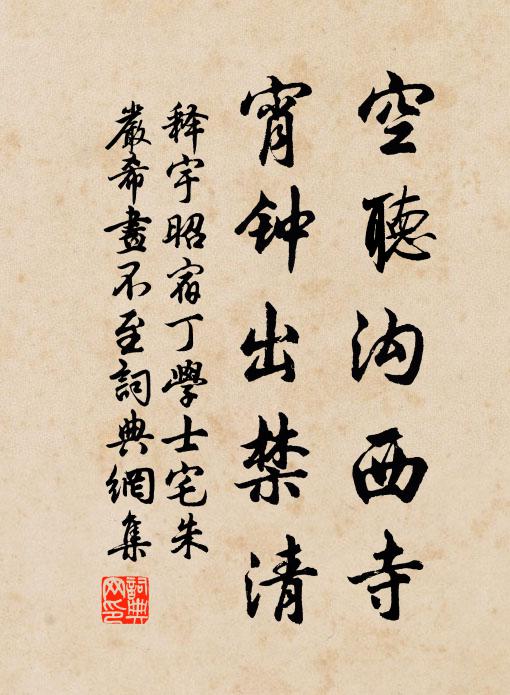 空聽沟西寺
宵钟出禁清
释宇昭宿丁學士宅朱
嚴希晝不至詞典網集
詞典